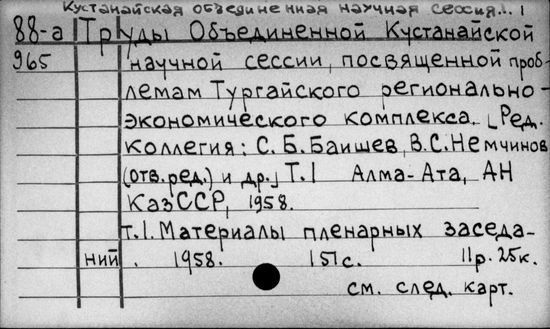 Кустанайская объединенная научная сессия... 1
88-а Труды Объединенной Кустанайской
965 научной сессии, посвященной проб-
лемам Тургайского регионально-
экономического комплекса. [Ред.
коллегия: С. Б. Баишев, В. С. Немчинов
(отв. ред.) и др.] Т. 1 Алма-Ата, АН
КазССР, 1958.
т. 1. Материалы пленарных заседа-
ний. 1958. 151 с. 11 р. 25 к.
см. след. карт.